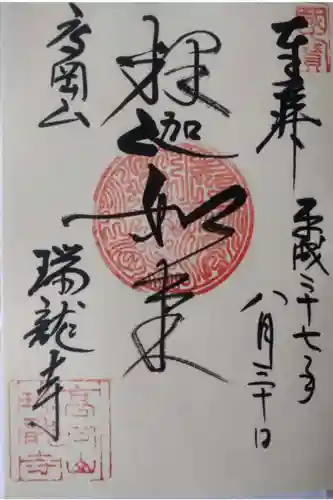 奉拝
平成二十七年
八月
釋迦如来
高岡山
瑞龍寺
高岡山
瑞龍寺